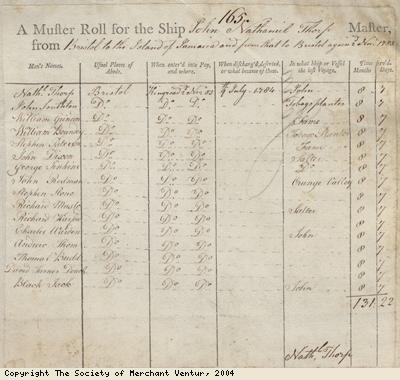 165.
A Muster Roll for the Ship John Nathaniel Thorp Master,
from Bristol to the Island of Jamaica and from that to Bristol again
Men's Names. Usual Places of Abode. When enter'd into Pay, and where. When discharg'd, deserted, or what became of them. In what Ship or Vessel the last Voyage. Time Months Days.
Nath. Thorp Bristol July 1784 John 8 7
John Do. Do. Do. 8 7
William Do. Do. Do. Fame 8 7
William Do. Do. Do. 8 7
Stephen Do. Do. Do. Fame 8 7
John Dixon Do. Do. Do. Salter 8 7
George Jenkins Do. Do. Do. Do. 8 7
John Redman Do. Do. Do. Orange Valley 8 7
Stephen Do. Do. Do. 8 7
Richard Do. Do. Do. Salter 8 7
Richard Do. Do. Do. 8 7
Charles Do. Do. Do. John 8 7
Andrew Thom Do. Do. Do. 8 7
Thomas Budd Do. Do. Do. 8 7
David Turner Do. Do. Do. 8 7
Black Jack Do. Do. Do. John 8 7
131 22
Nathl. Thorp
Copyright The Society of Merchant Ventur, 2004